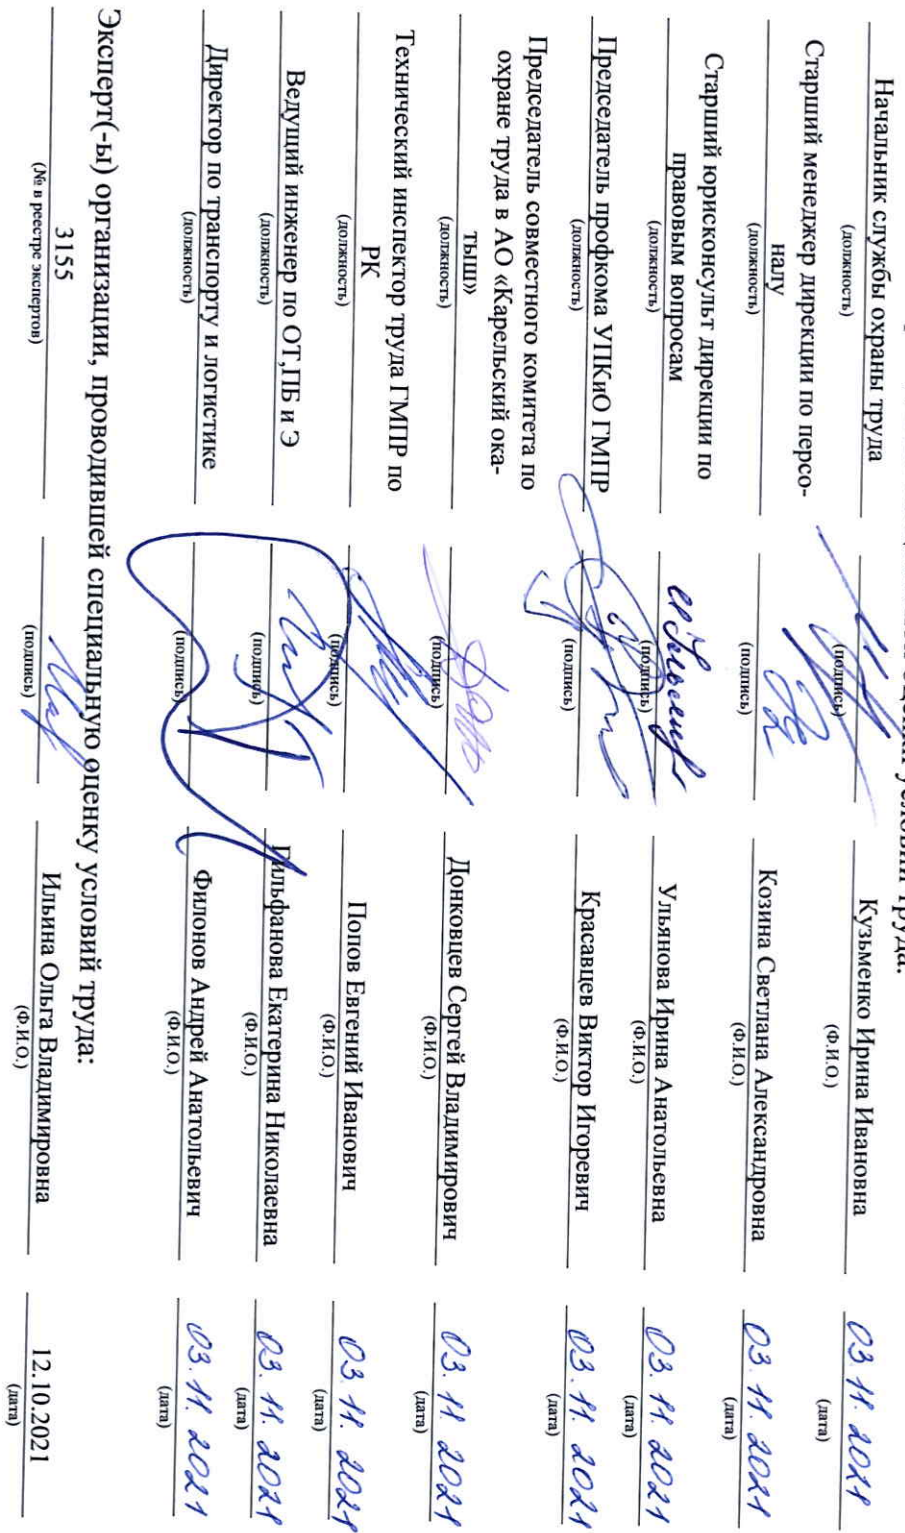 условий труда:
Начальник службы охраны труда Кузьменко Ирина Ивановна 03.11.2021
(должность) (подпись) (Ф.И.О.) (дата)
Старший менеджер дирекции по персо-
налу Козина Светлана Александровна 03.11.2021
(должность) (подпись) (Ф.И.О.) (дата)
Старший юрисконсульт дирекции по
правовым вопросам Ульянова Ирина Анатольевна 03.11.2021
(должность) (подпись) (Ф.И.О.) (дата)
Председатель профкома УПКиО ГМПР Красавцев Виктор Игоревич 03.11.2021
(должность) (подпись) (Ф.И.О.) (дата)
Председатель совместного комитета по
охране труда в АО «Карельский ока-
тыш» Донковцев Сергей Владимирович 03.11.2021
(должность) (подпись) (Ф.И.О.) (дата)
Технический инспектор труда ГМПР по
РК Попов Евгений Иванович 03.11.2021
(должность) (подпись) (Ф.И.О.) (дата)
Ведущий инженер по ОТ,ПБ и Э Гильфанова Екатерина Николаевна 03.11.2021
(должность) (подпись) (Ф.И.О.) (дата)
Директор по транспорту и логистике Филонов Андрей Анатольевич 03.11.2021
(должность) (подпись) (Ф.И.О.) (дата)
Эксперт(-ы) организации, проводившей специальную оценку условий труда:
3155 Ильина Ольга Владимировна 12.10.2021
(№ в реестре экспертов) (подпись) (Ф.И.О.) (дата)